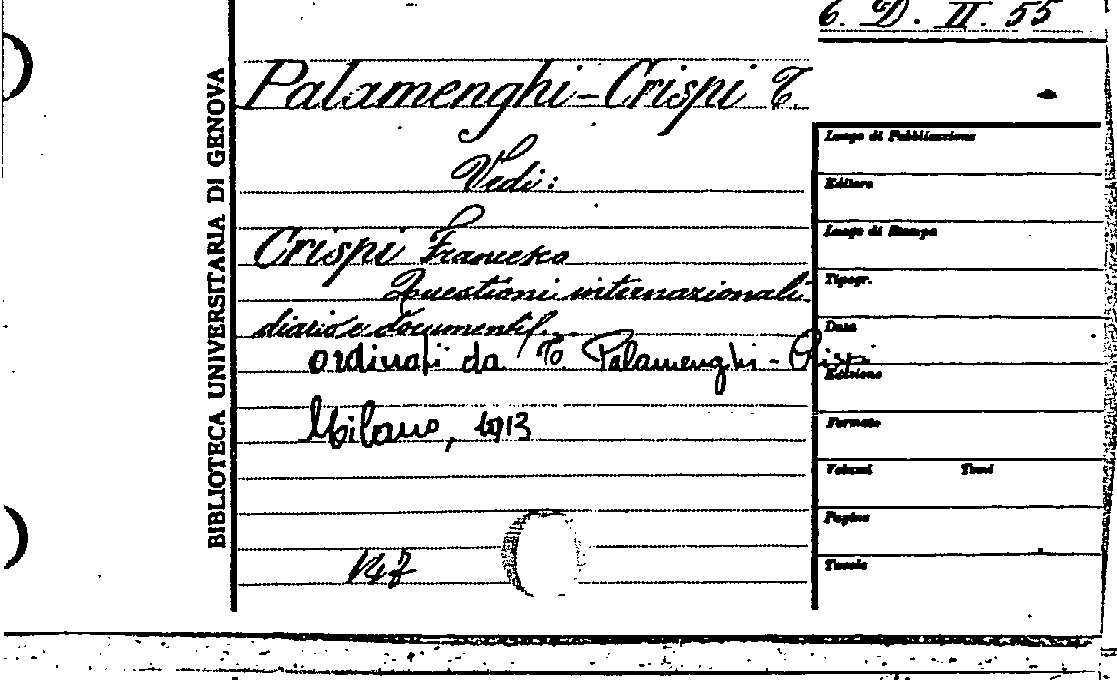 6. D. II. 55
BIBLIOTECA UNIVERSITARIA DI GENOVA
Palamenghi-Crispi T.
Vedi:
Crispi Francesco
Questioni internazionali.
diario e documenti
ordinati da T. Palamenghi-Crispi
Milano, 1913
147
Luogo di Pubblicazione
Editore
Luogo di Stampa
Tipogr.
Data
Edizione
Formato
Volumi Tomi
Pagine
Tavole